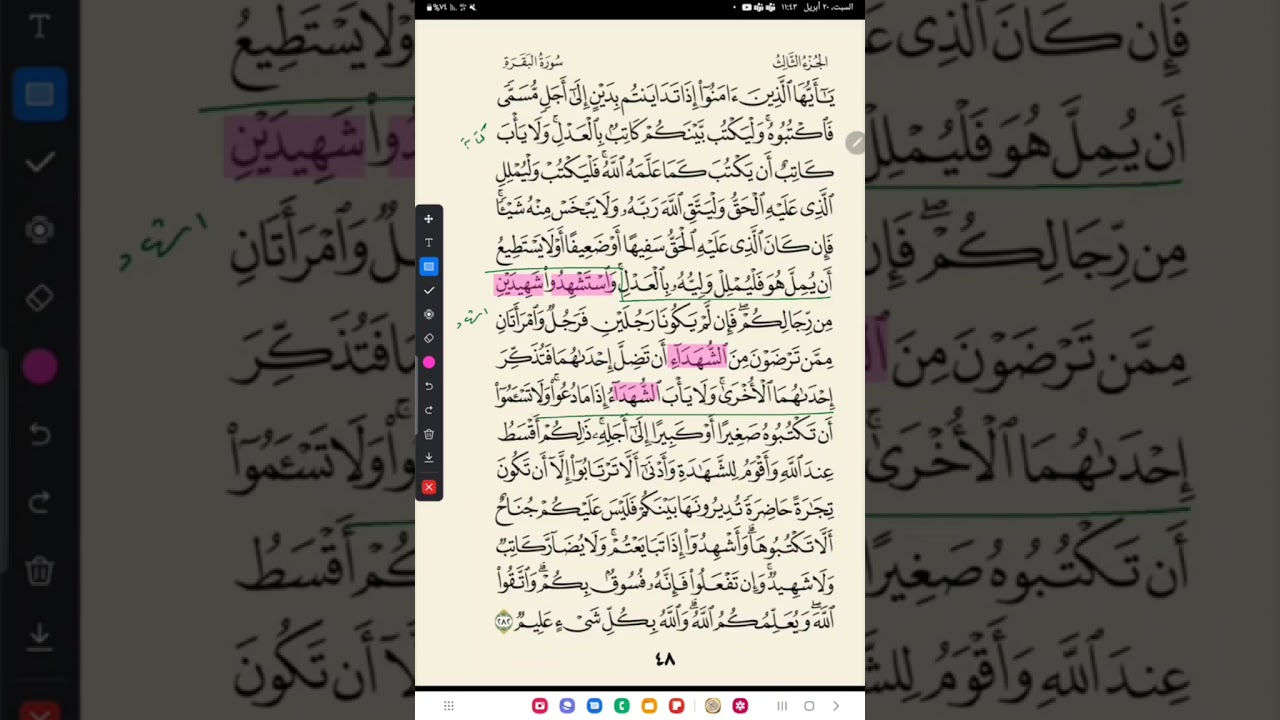 السبت، ٢٠ أبريل ١١:٤٣
٪٧٤
الجُزْءُ الثَّالِثُ
سُورَةُ البَقَرَةِ
يَٰٓأَيُّهَا ٱلَّذِينَ ءَامَنُوٓا۟ إِذَا تَدَايَنتُم بِدَيْنٍ إِلَىٰٓ أَجَلٍ مُّسَمًّى
فَٱكْتُبُوهُ ۚ وَلْيَكْتُب بَّيْنَكُمْ كَاتِبٌۢ بِٱلْعَدْلِ ۚ وَلَا يَأْبَ
كَاتِبٌ أَن يَكْتُبَ كَمَا عَلَّمَهُ ٱللَّهُ ۚ فَلْيَكْتُبْ وَلْيُمْلِلِ
ٱلَّذِى عَلَيْهِ ٱلْحَقُّ وَلْيَتَّقِ ٱللَّهَ رَبَّهُۥ وَلَا يَبْخَسْ مِنْهُ شَيْـًٔا ۚ
فَإِن كَانَ ٱلَّذِى عَلَيْهِ ٱلْحَقُّ سَفِيهًا أَوْ ضَعِيفًا أَوْ لَا يَسْتَطِيعُ
أَن يُمِلَّ هُوَ فَلْيُمْلِلْ وَلِيُّهُۥ بِٱلْعَدْلِ ۚ وَٱسْتَشْهِدُوا۟ شَهِيدَيْنِ
مِن رِّجَالِكُمْ ۖ فَإِن لَّمْ يَكُونَا رَجُلَيْنِ فَرَجُلٌ وَٱمْرَأَتَانِ
مِمَّن تَرْضَوْنَ مِنَ ٱلشُّهَدَآءِ أَن تَضِلَّ إِحْدَىٰهُمَا فَتُذَكِّرَ
إِحْدَىٰهُمَا ٱلْأُخْرَىٰ ۚ وَلَا يَأْبَ ٱلشُّهَدَآءُ إِذَا مَا دُعُوا۟ ۚ وَلَا تَسْـَٔمُوٓا۟
أَن تَكْتُبُوهُ صَغِيرًا أَوْ كَبِيرًا إِلَىٰٓ أَجَلِهِۦ ۚ ذَٰلِكُمْ أَقْسَطُ
عِندَ ٱللَّهِ وَأَقْوَمُ لِلشَّهَٰدَةِ وَأَدْنَىٰٓ أَلَّا تَرْتَابُوٓا۟ ۖ إِلَّآ أَن تَكُونَ
تِجَٰرَةً حَاضِرَةً تُدِيرُونَهَا بَيْنَكُمْ فَلَيْسَ عَلَيْكُمْ جُنَاحٌ
أَلَّا تَكْتُبُوهَا ۗ وَأَشْهِدُوٓا۟ إِذَا تَبَايَعْتُمْ ۚ وَلَا يُضَآرَّ كَاتِبٌ
وَلَا شَهِيدٌ ۚ وَإِن تَفْعَلُوا۟ فَإِنَّهُۥ فُسُوقٌۢ بِكُمْ ۗ وَٱتَّقُوا۟
ٱللَّهَ ۖ وَيُعَلِّمُكُمُ ٱللَّهُ ۗ وَٱللَّهُ بِكُلِّ شَىْءٍ عَلِيمٌ ٢٨٢
٤٨